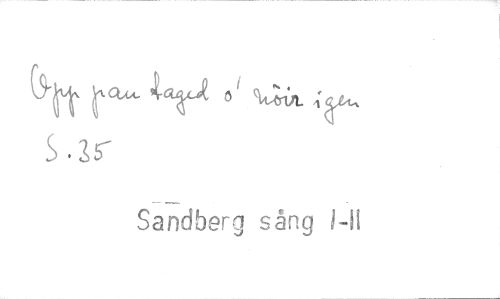 Opp pau taged o' nöir igen
S. 35
Sandberg sång I-II